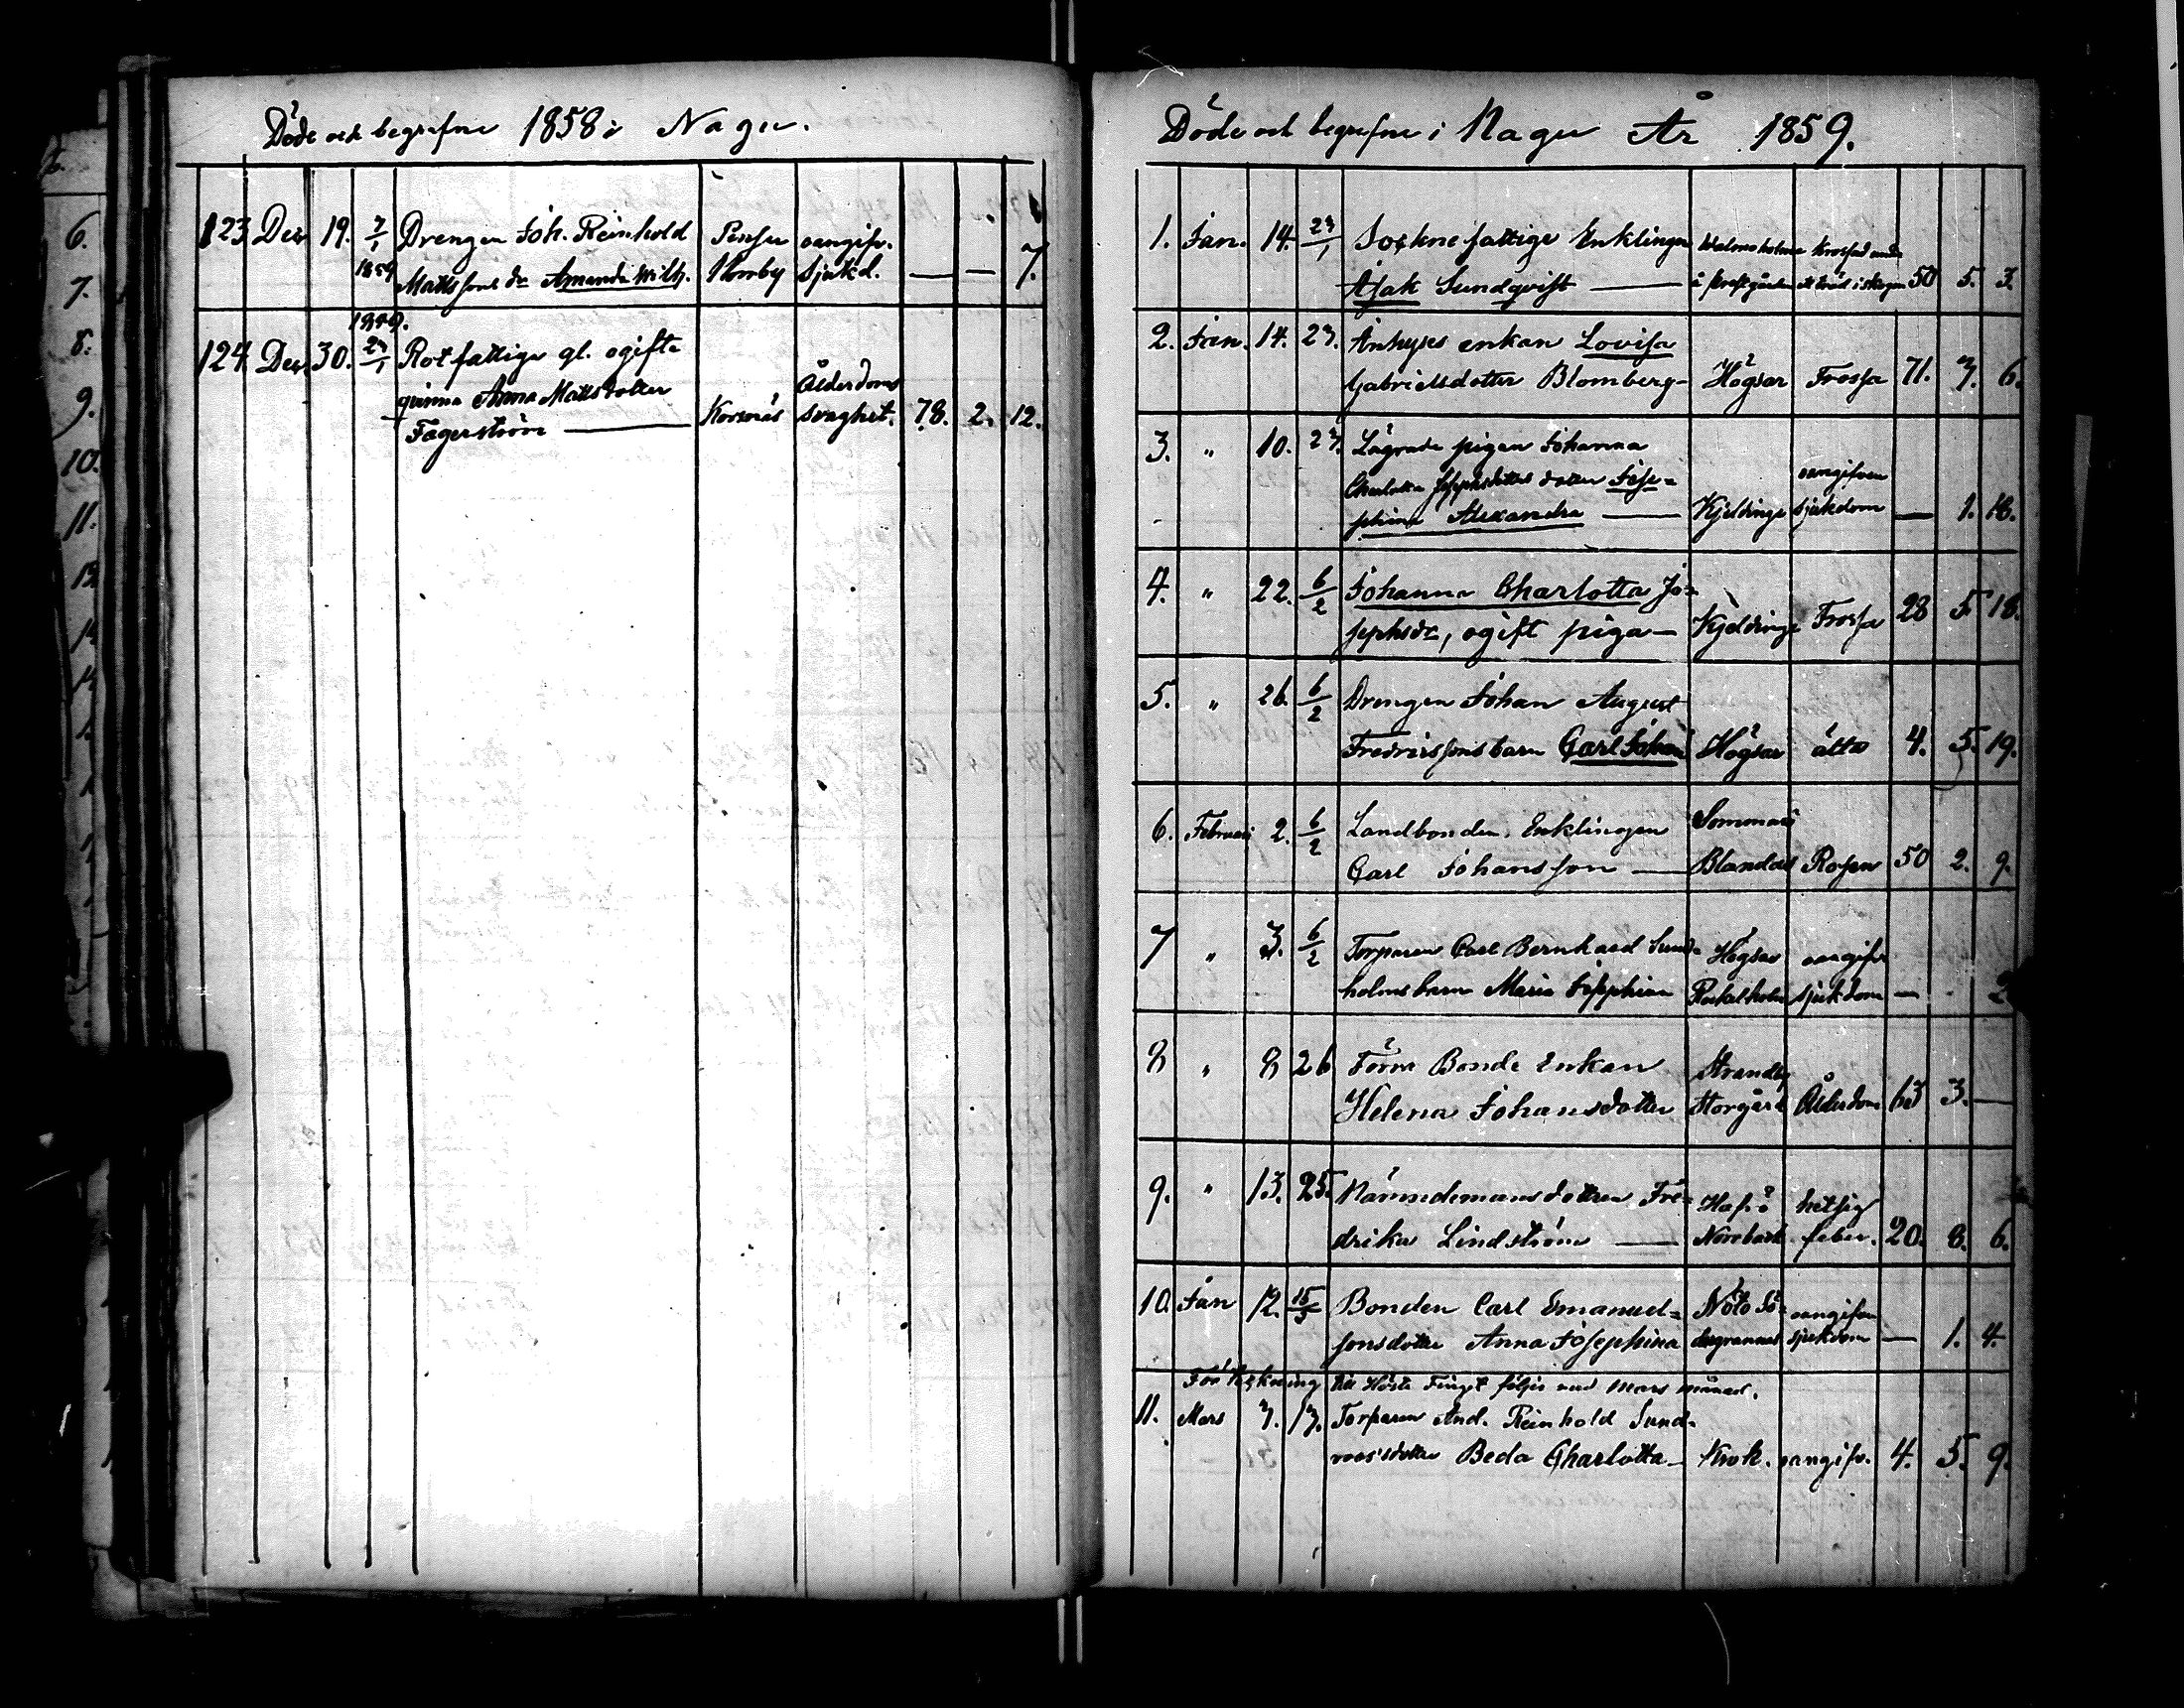 Döde och begrafne 1858 i Nagu.
123 Decr 19. 7/1 1859 Drengen Joh. Reinhold
Mattssons dr Amanda Wilh. oangifv. sjukd. — — 7.
124 Decr 30. 1859. 23/1 Rotfattige gl. ogifta
qvinna Anna Mattsdotter
Fagerström — Korsnäs Ålderdoms svaghet. 78. 2. 12.
Döde och begrafne i Nagu År 1859.
1. Jan. 14. 23/1 Socknefattige Enklingen
Isak Sundqvist — 50 5. 3.
2. Jan. 14. 23. Inhyses enkan Lovisa
Gabrielsdotter Blomberg — Högsar Frossa 71. 7. 6.
3. " 10. 23. Lägrade pigan Johanna
Charlotta Josephsdotters dotter Jose-
phina Alexandra — Kjeldinge oangifven sjukdom — 1. 18.
4. " 22. 6/2 Johanna Charlotta Jo-
sephsdr, ogift piga — Kjeldinge Frossa 28 5. 18.
5. " 26. 6/2 Drengen Johan August
Fredrikssons barn Carl Johan Högsar 4. 5. 19.
6. Februari 2. 6/2 Landbonden, Enklingen
Carl Johansson — Rosen 50 2. 9.
7 " 3. 6/2 Torparen Carl Bernhard Sund-
holms barn Maria Josephina Högsar oangifv sjukdom — 2
8 " 8 26 Förre Bonde Enkan
Helena Johansdotter Strandby Storgård Ålderdom 63 3. —
9. " 13. 25. Nämndemans dottren Fre-
drika Lindström — hetsig feber. 20. 8. 6.
10. Jan 12. 15/3 Bonden Carl Emanuel-
sonsdotter Anna Josephina Nötö oangifven sjukdom — 1. 4.
till Höste Tinget följer med Mars månad.
11. Mars 7. 13. Torparen And. Reinhold Sund-
roos's dotter Beda Charlotta — Krok. oangifv. 4. 5. 9.